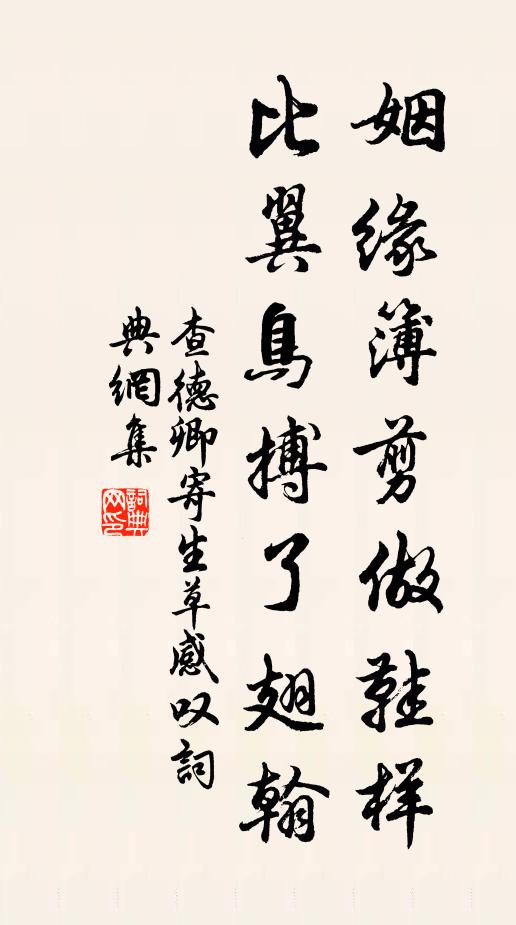 姻缘簿剪做鞋样
比翼鳥搏了翅翰
查德卿寄生草感叹詞
典網集
詞典网印